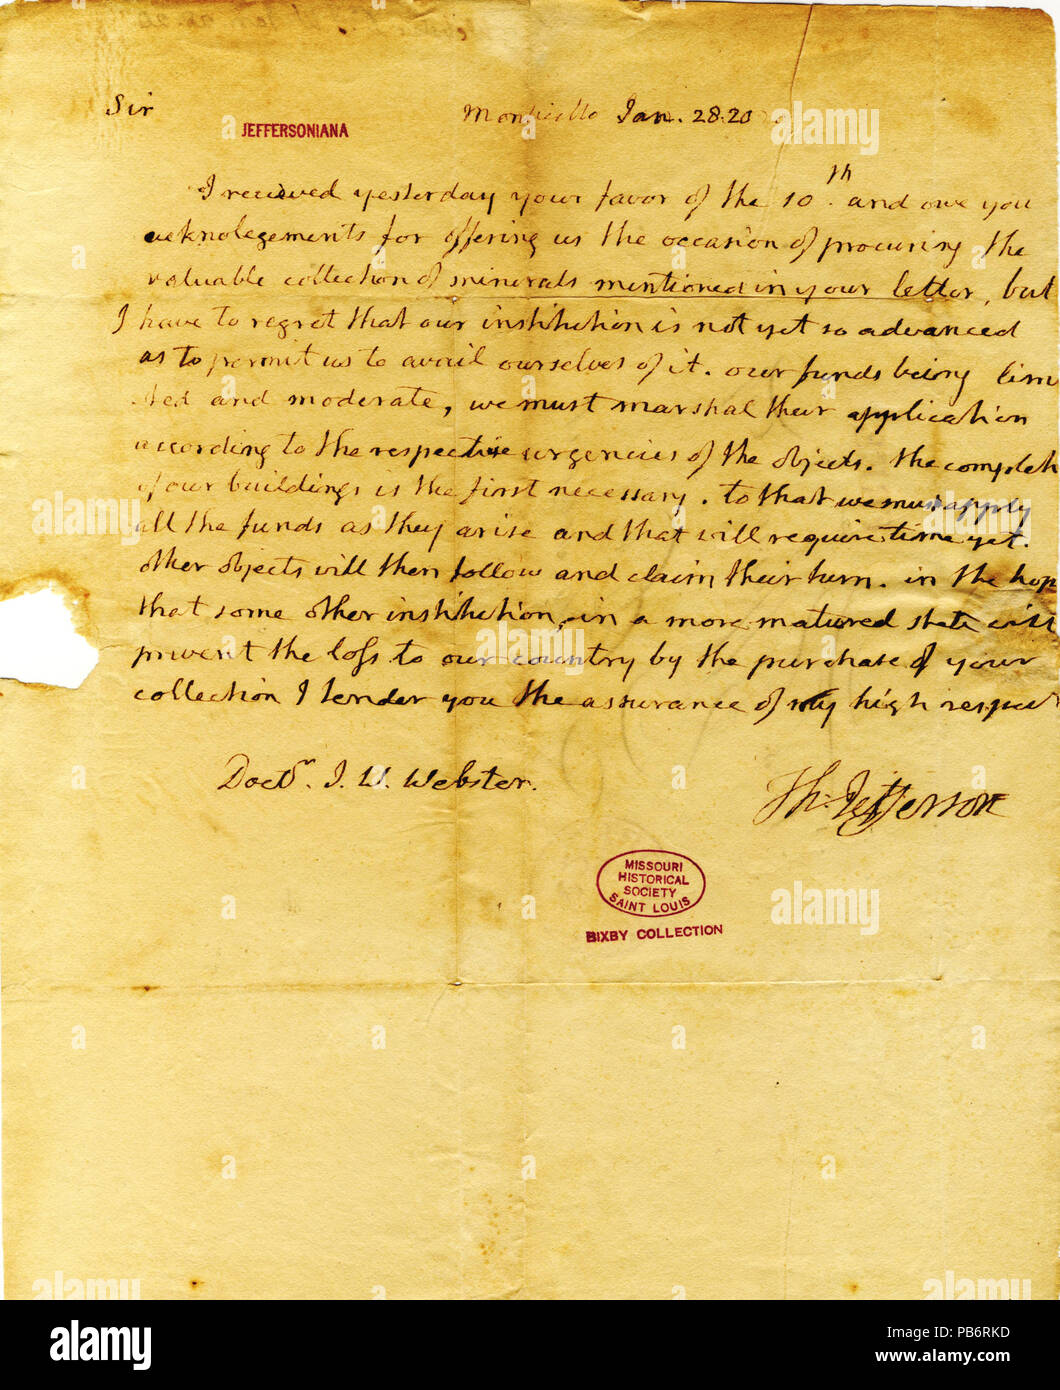 Sir
Monticello Jan. 28. 20
JEFFERSONIANA
I recieved yesterday your favor of the 10th. and owe you
acknolegements for offering us the occasion of procuring the
valuable collection of minerals mentioned in your letter, but
I have to regret that our institution is not yet so advanced
as to permit us to avail ourselves of it. our funds being lim
ited and moderate, we must marshal their application
according to the respective urgencies of the objects. the complet
of our buildings is the first necessary. to that we must apply
all the funds as they arise and that will require time yet.
other objects will then follow and claim their turn. in the hop
that some other institution, in a more matured state will
prevent the loss to our country by the purchase of your
collection I tender you the assurance of my high respect
Doctr. J. W. Webster.
Th: Jefferson
MISSOURI
HISTORICAL
SOCIETY
SAINT LOUIS
BIXBY COLLECTION
alamy
Image ID: PB6RKD
www.alamy.com